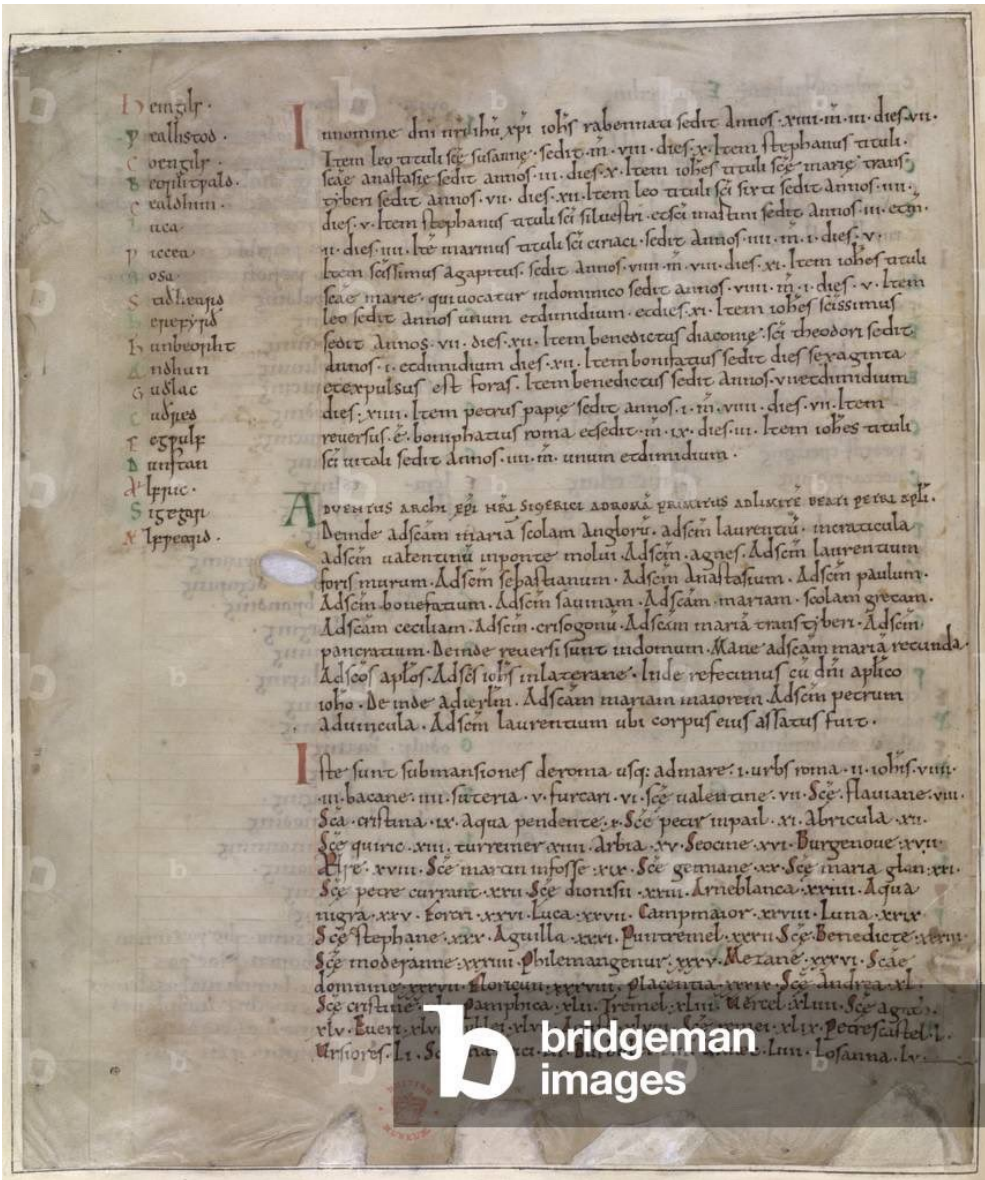 Hemgils ·
Ƿealhstod ·
Coengils ·
Beorhtƿald ·
Cealdhun ·
Luca
Ƿiccea
Bosa
Stiðheard
Herefyrð
Hunbeorht
Andhun
Guðlac
Cuðred
Ecgƿulf
Dunstan
Ælfric ·
Sigegar
Ælfƿeard ·
In nomine dñi nr̃i ihũ xp̃i ioh̃s rabennati sedit Annos · xiiii · m̃ · iii · dies · vii ·
Item leo tituli sc̃e susanne · sedit · m̃ · viii · dies · x · Item stephanus tituli ·
scãe anastasie sedit annos · iii · dies · x · Item ioh̃es tituli sc̃e marie trans
tyberi sedit annos · vii · dies · xii · Item leo tituli sc̃i sixti sedit annos · iiii ·
dies · v · Item stephanus tituli sc̃i siluestri · et sc̃i martini sedit Annos · iii · et m̃ ·
ii · dies · iiii · Itẽ marinus tituli sc̃i ciriaci · sedit Annos · iiii · m̃ · i · dies · v ·
Item sc̃issimus Agapitus · sedit Annos · viiii · m̃ · vii · dies · xi · Item ioh̃es tituli
scãe marie · qui uocatur in dominico sedit annos · viiii · m̃ · i · dies · v · Item
leo sedit annos unum et dimidium · et dies · xi · Item ioh̃es sc̃issimus
sedit Annos · vii · dies · xii · Item benedictus diaconie · sc̃i theodori sedit
Annos · i · et dimidium dies · xii · Item bonifatius sedit dies sexaginta
et expulsus est foras · Item benedictus sedit Annos · vii et dimidium
dies · xiiii · Item petrus papie sedit annos · i · m̃ · viiii · dies · vii · Item
reuersus · ẽ · boniphatius roma et sedit · m̃ · ix · dies · iii · Item ioh̃es tituli
sc̃i uitali sedit Annos · iiii · m̃ · unum et dimidium ·
ADVENTUS ARCHI EP̃I NR̃I SIGERICI AD ROMÃ PRIMITUS AD LIMITẼ BEATI PETRI AP̃LI ·
Deinde ad scãm mariã scolam Anglorũ · ad sc̃m laurentiũ · in craticula
ad sc̃m ualentinũ in ponte molui · Ad sc̃m · agnes · Ad sc̃m laurentium
foris murum · Ad sc̃m sebastianum · Ad sc̃m Anastasium · Ad sc̃m paulum ·
Ad sc̃m bonefatium · Ad sc̃m sauinam · Ad scãm · mariam · scolam grecam ·
Ad scãm ceciliam · Ad sc̃m · crisogonũ · Ad scãm mariã transtyberi · Ad sc̃m
pancratium · Deinde reuersi sunt in domum · Mane ad scãm mariã rotunda ·
Ad sc̃os ap̃los · Ad sc̃s ioh̃s in laterane · Inde refecimus cũ dñi aplico
ioh̃o · Deinde ad ierlm̃ · Ad scãm mariam maiorem Ad sc̃m petrum
ad uincula · Ad sc̃m laurentium ubi corpus eius assatus fuit ·
Iste sunt submansiones de roma usq; ad mare · i · urbs roma · ii · ioh̃is · viiii ·
iii · bacane · iiii · suteria · v · furcari · vi · sc̃e ualentine · vii · Sc̃e · flauiane · viii ·
Sc̃a · cristina · ix · Aqua pendente · x · Sc̃e petir in pail · xi · Abricula · xii ·
Sc̃e quiric · xiii · turreiner · xiiii · Arbia · xv · Seocine · xvi · Burgenoue · xvii ·
Ælse · xviii · Sc̃e martin in fosse · xix · Sc̃e gemiane · xx · Sc̃e maria glan · xxi ·
Sc̃e petre currant · xxii · Sc̃e dionisii · xxiii · Arneblanca · xxiiii · Aqua
nigra · xxv · Forcri · xxvi · Luca · xxvii · Campmaior · xxviii · Luna · xxix
Sc̃e stephane · xxx · Aguilla · xxxi · Puntremel · xxxii · Sc̃e · Benedicte · xxxiii ·
Sc̃e moderanne · xxxiiii · Philemangenur · xxxv · Metane · xxxvi · Scãe
domnine · xxxvii · Floricun · xxxviii · Placentia · xxxix · Sc̃e Andrea · xl ·
Sc̃e cristine · Pamphica · xlii · Tremel · xliii · Uercel · xliiii · Sc̃e agath̃ ·
xlv · Everi · xlvi · · Sc̃e remei · xlix · Petrescastel · l ·
Ursiores · li · · liiii · Losanna · lv ·
BRITISH MUSEUM
bridgeman
images